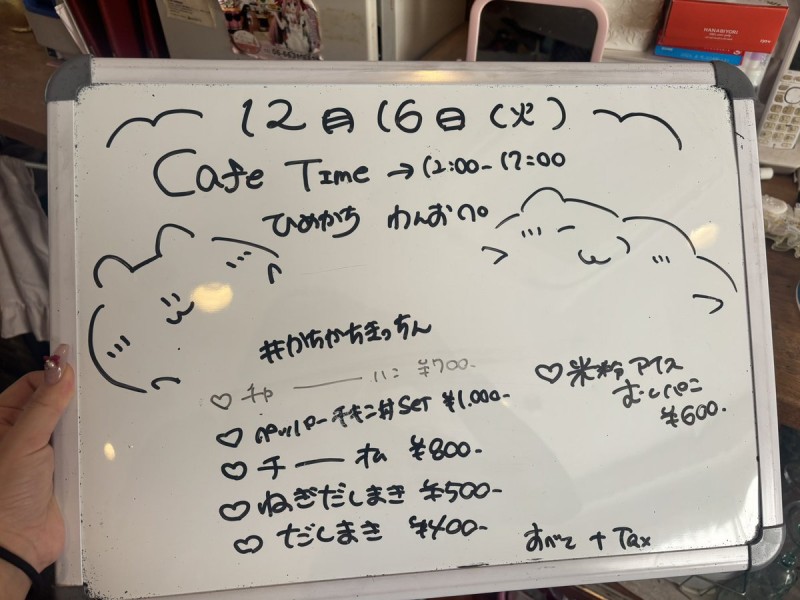 12月16日(火)
Cafe Time →12:00-17:00
ひめかち わんおぺ
#かちかちきっちん
♡ チャーハン ¥700-
♡ ペッパーチキン丼set ¥1.000-
♡ チーオム ¥800-
♡ ねぎだしまき ¥500-
♡ だしまき ¥400-
♡ 米粉アイス
むしパン
¥600.
すべて + Tax
HANABIYORI